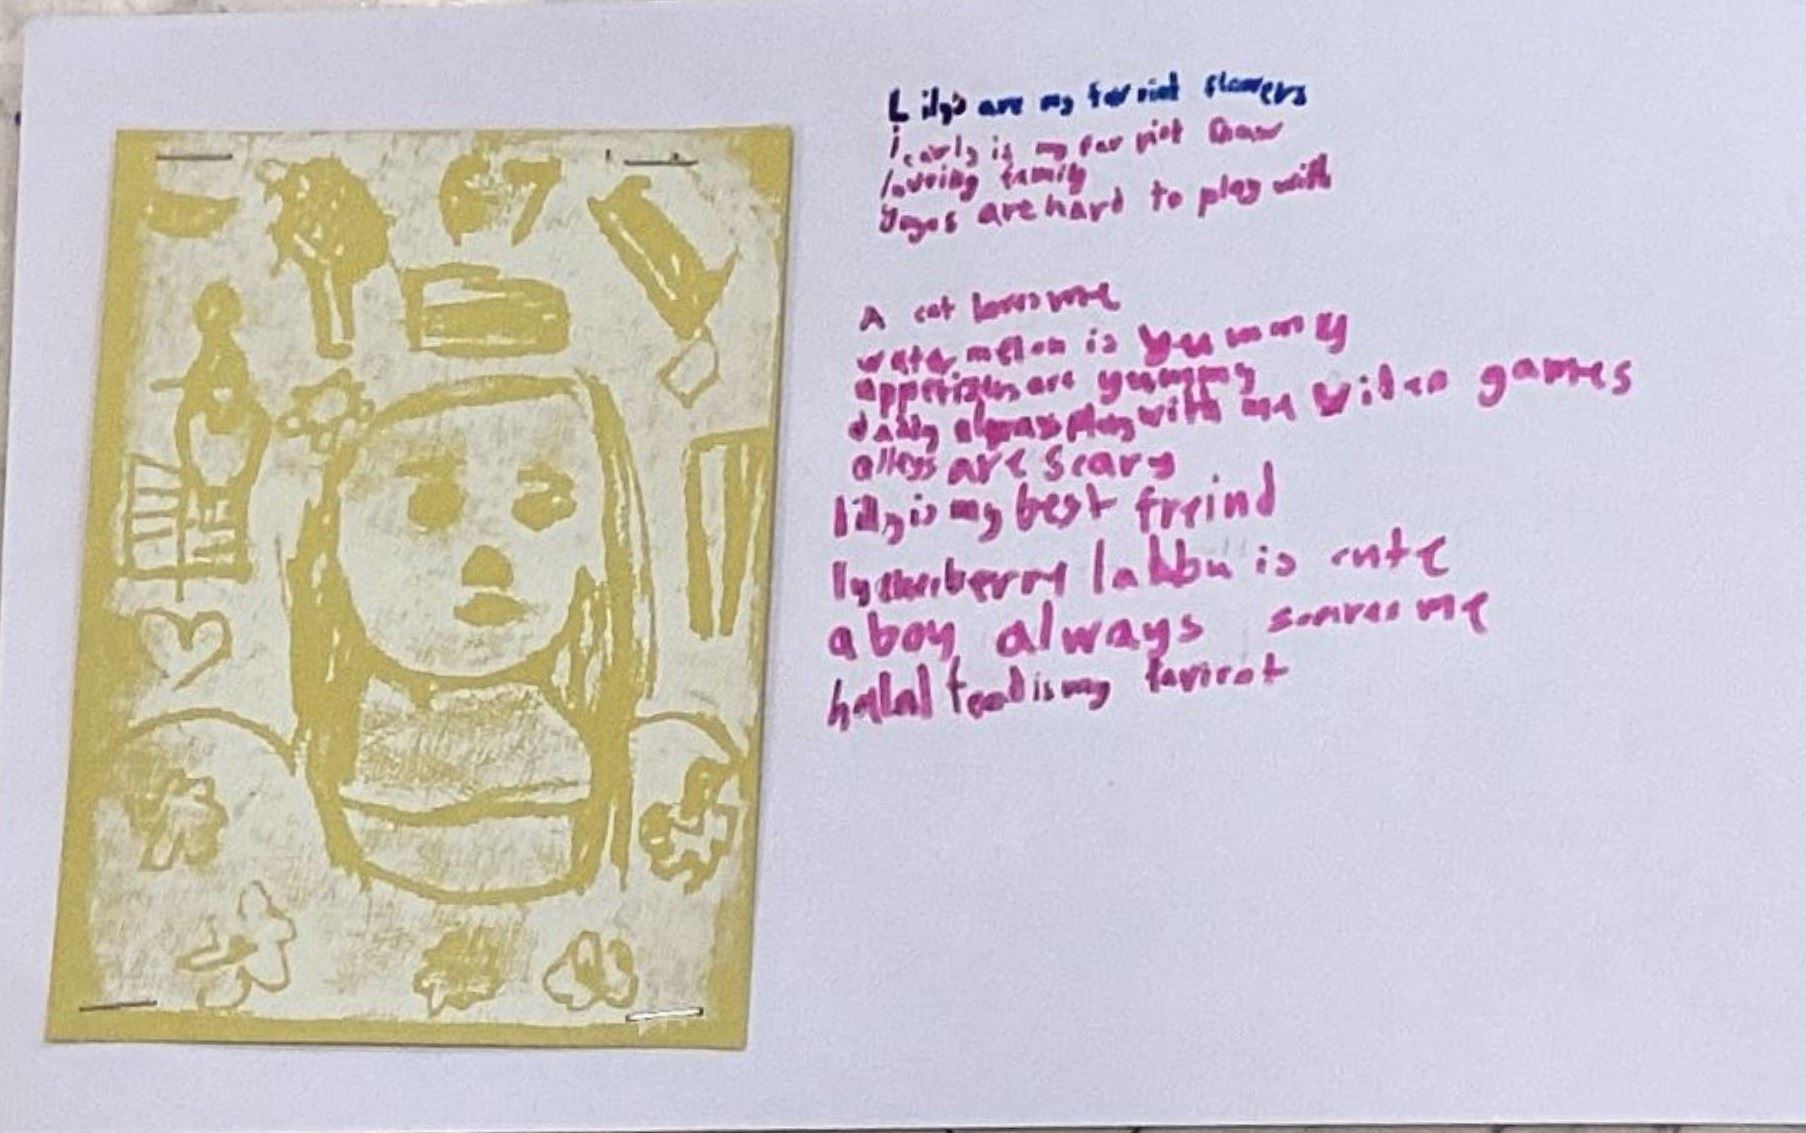 Lily's are my forvint flowers
icarly is my farviot Show
loveing family
yoyos are hard to play with
A cat loves me
watermelon is yummy
appetizers are yummy
daddy always play with me video games
alleys are scary
lilly is my best freind
labbu is cute
a boy always scares me
halal food is my favirot